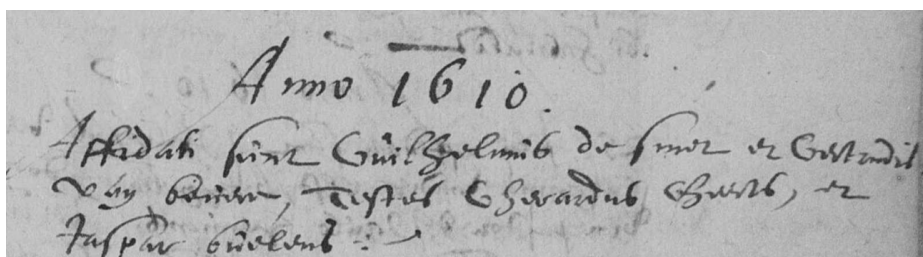 Anno 1610.
Affidati sunt Guilhelmus de smet et Gertrudis
van beuere, Testes Gherardus Gheerts, et
Jaspar buelens :